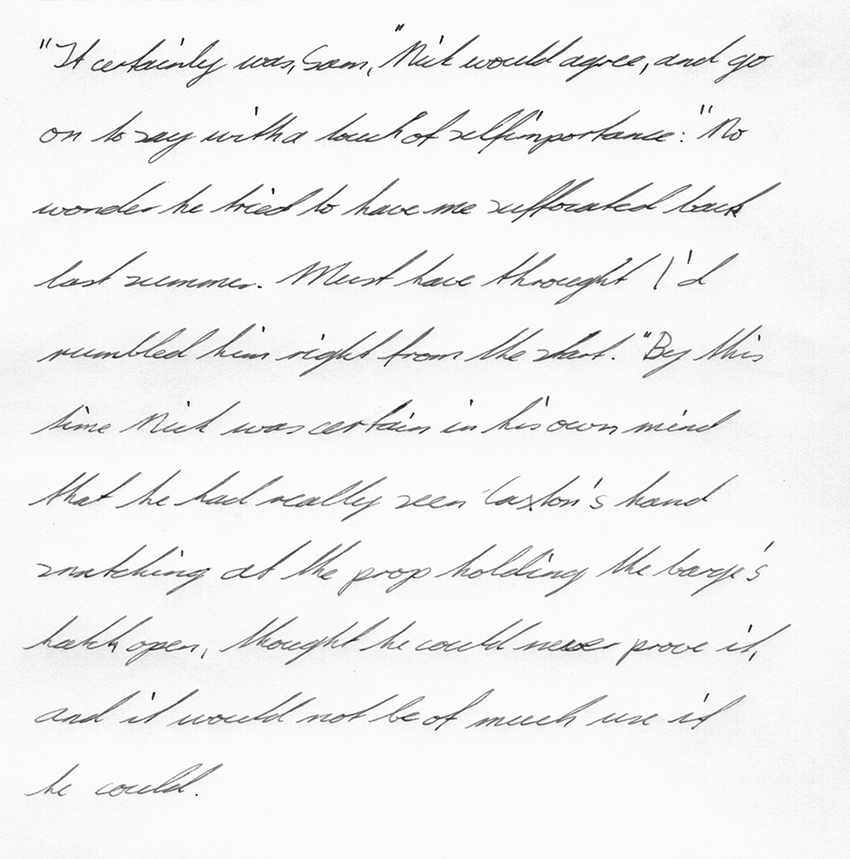 "It certainly was, Sam," Nick would agree, and go
on to say with a touch of selfimportance: "No
wonder he tried to have me suffocated back
last summer. Must have throught I'd
rumbled him right from the start." By this
time Nick was certain in his own mind
that he had really seen Caxton's hand
snatching at the prop holding the barge's
hatch open, thought he could never prove it,
and it would not be of much use if
he could.